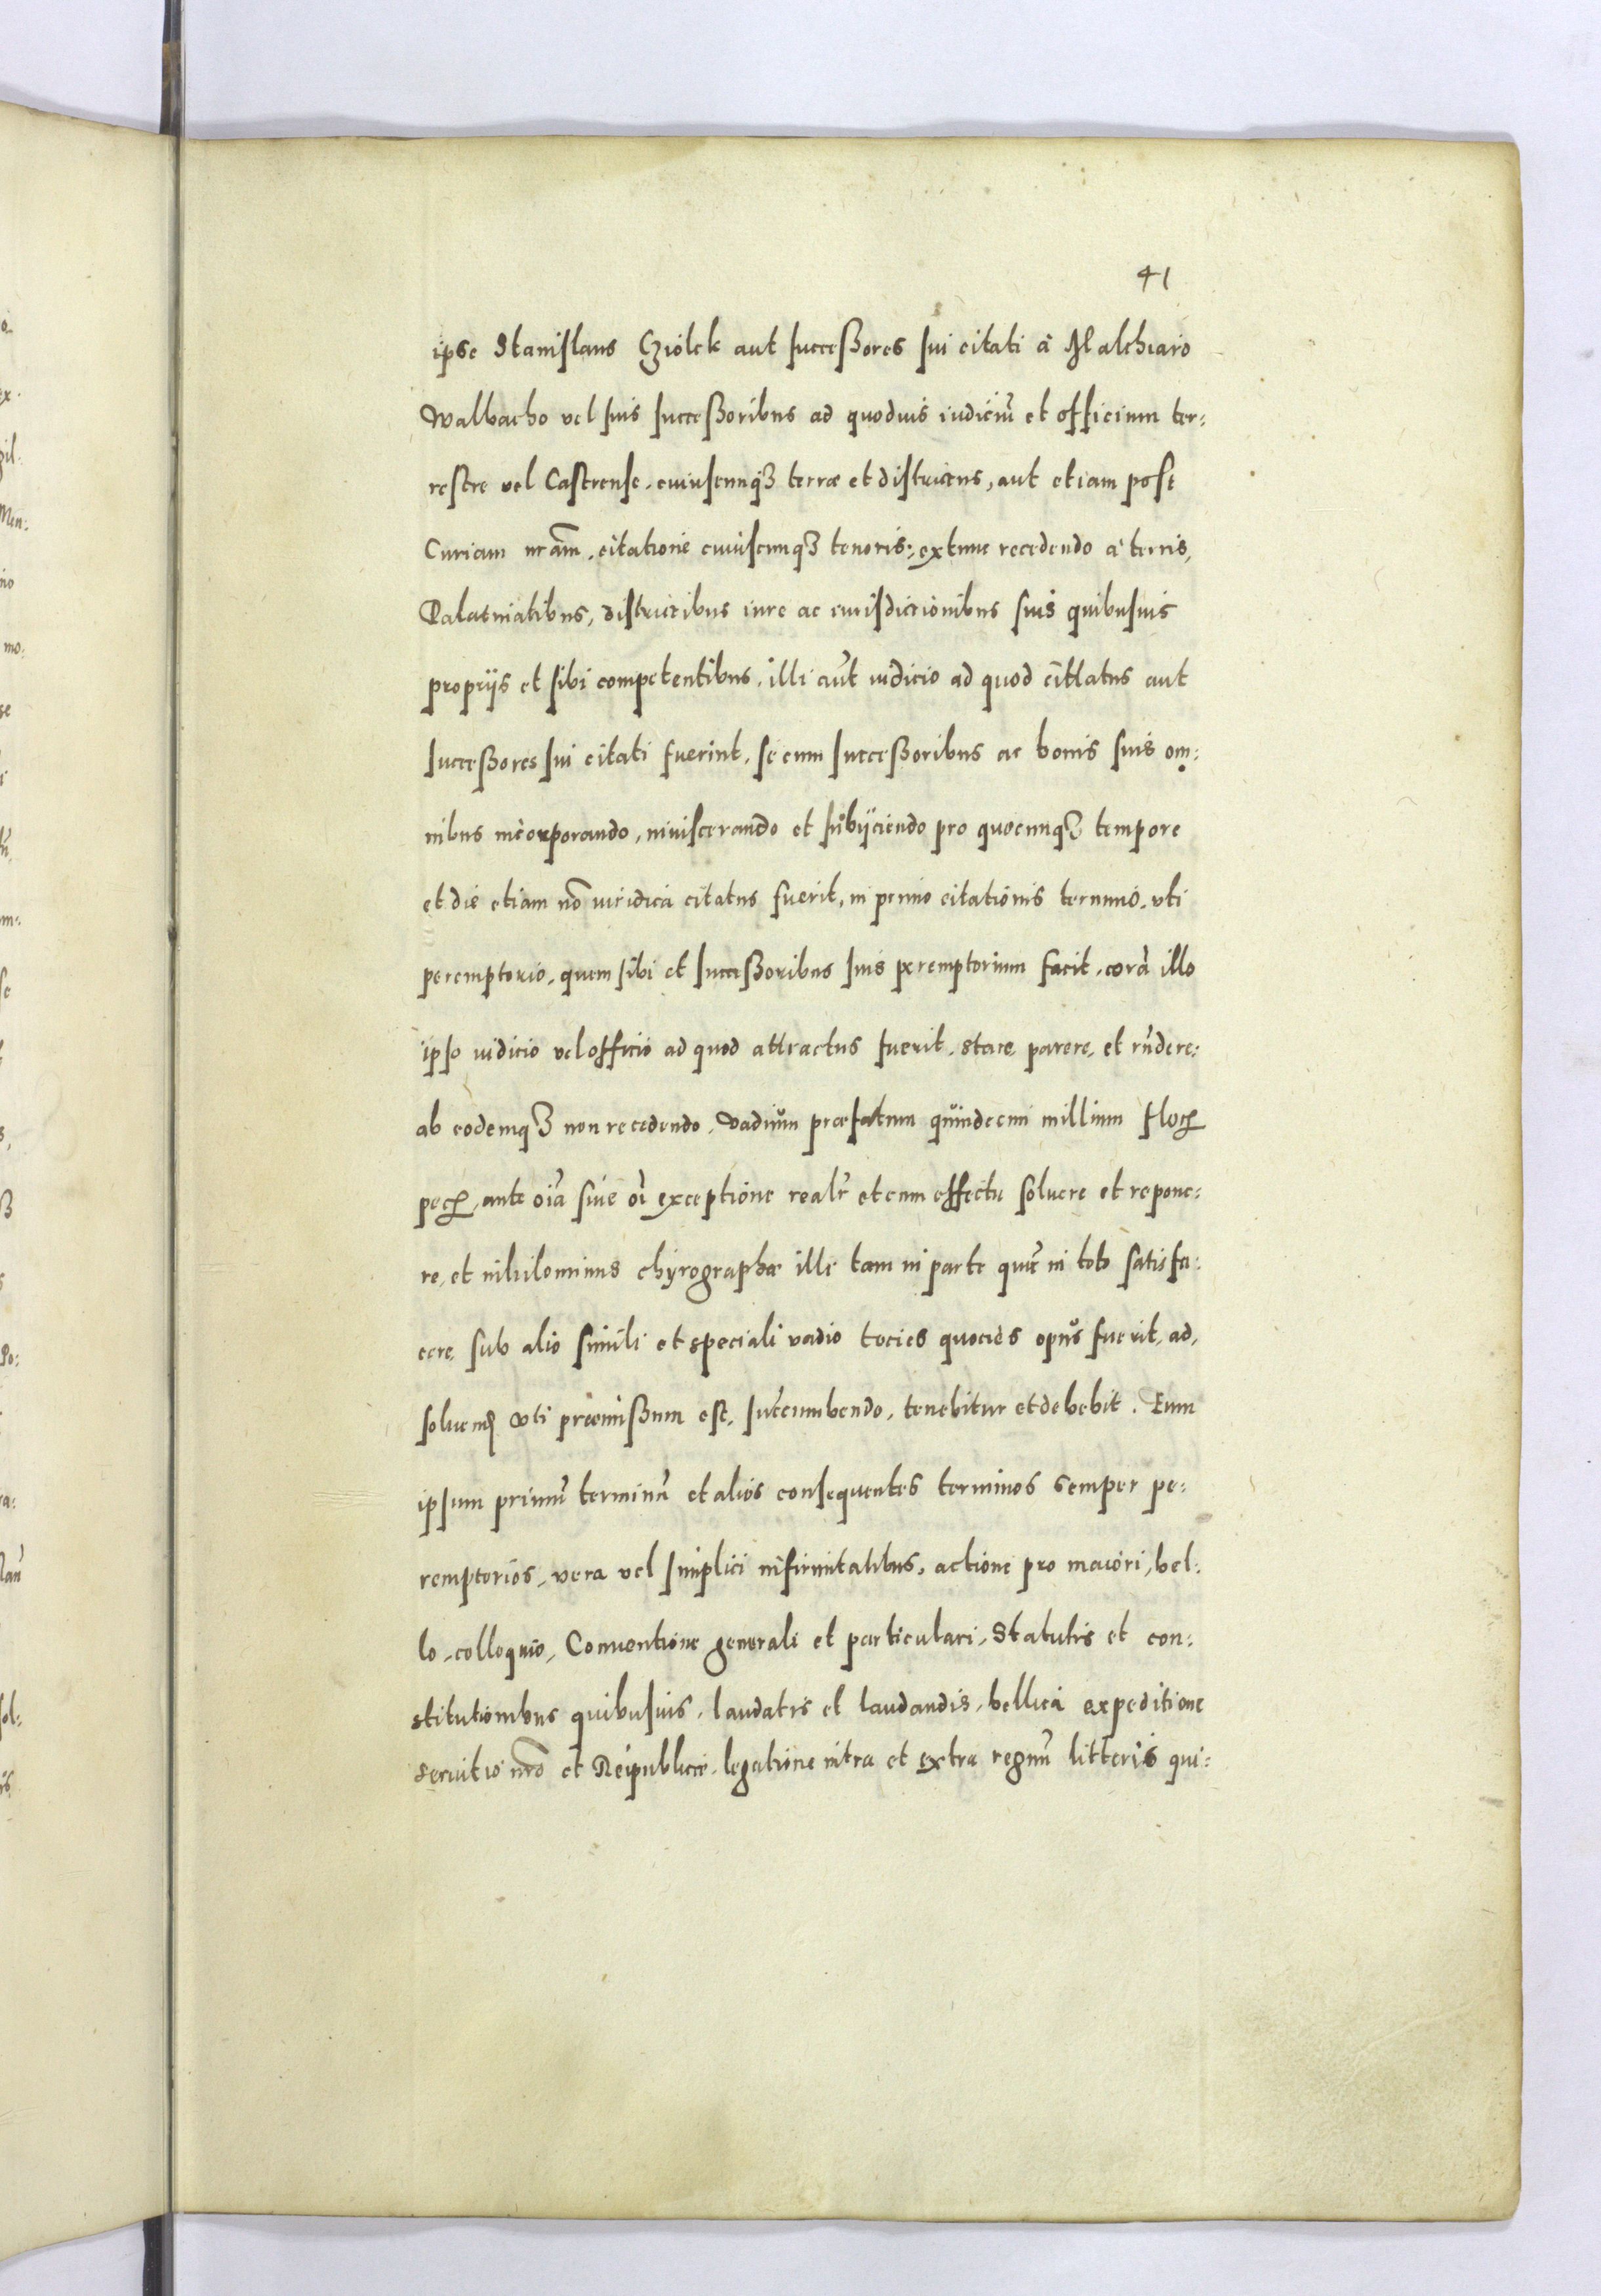 41
ipse Stanislaus Cziolek aut successores sui citati à Malchiaro
Walbacho vel suis successoribus ad quoduis iudiciũ et officium ter:
restre vel Castrense, cuiuscunq3 terræ et districtus, aut etiam post
Curiam nr̃am, citatione cuiuscunq3 tenoris; extunc recedendo à terris,
Palatinatibus, districtibus iure ac iurisdictionibus suis quibusuis
propriis et sibi competentibus, illi aũt iudicio ad quod citatus aut
successores sui citati fuerint, se cum successoribus ac bonis suis om:
nibus incorporando, inuiscerando et subijciendo pro quocunq3 tempore
et die etiam nõ iuridica citatus fuerit, in primo citationis termino, vti
peremptorio, quem sibi et successoribus suis peremptorium facit, corã illo
ipso iudicio vel officio ad quod attractus fuerit, stare, parere, et rñdere:
ab eodemq3 non recedendo, vadium præfatum quindecim millium flor
pec, ante oĩa sine oĩ exceptione realr̃ et cum effectu soluere et repone:
re, et nihilominus chyrographæ illi tam in parte quã in toto satisfa:
cere, sub alio simili et speciali vadio tocies quocies opus fuerit, ad,
soluend vti præmissum est, succumbendo, tenebitur et debebit. Eum
ipsum primũ terminũ et alios consequentes terminos semper pe:
remptorios, vera vel simplici infirmitatibus, actione pro maiori, bel:
lo, colloquio, Conuentione generali et particulari, Statutis et con:
stitutionibus quibusuis, laudatis et laudandis, bellica expeditione
seruitio nr̃o et Reipublicæ, legatione intra et extra regnũ litteris qui: